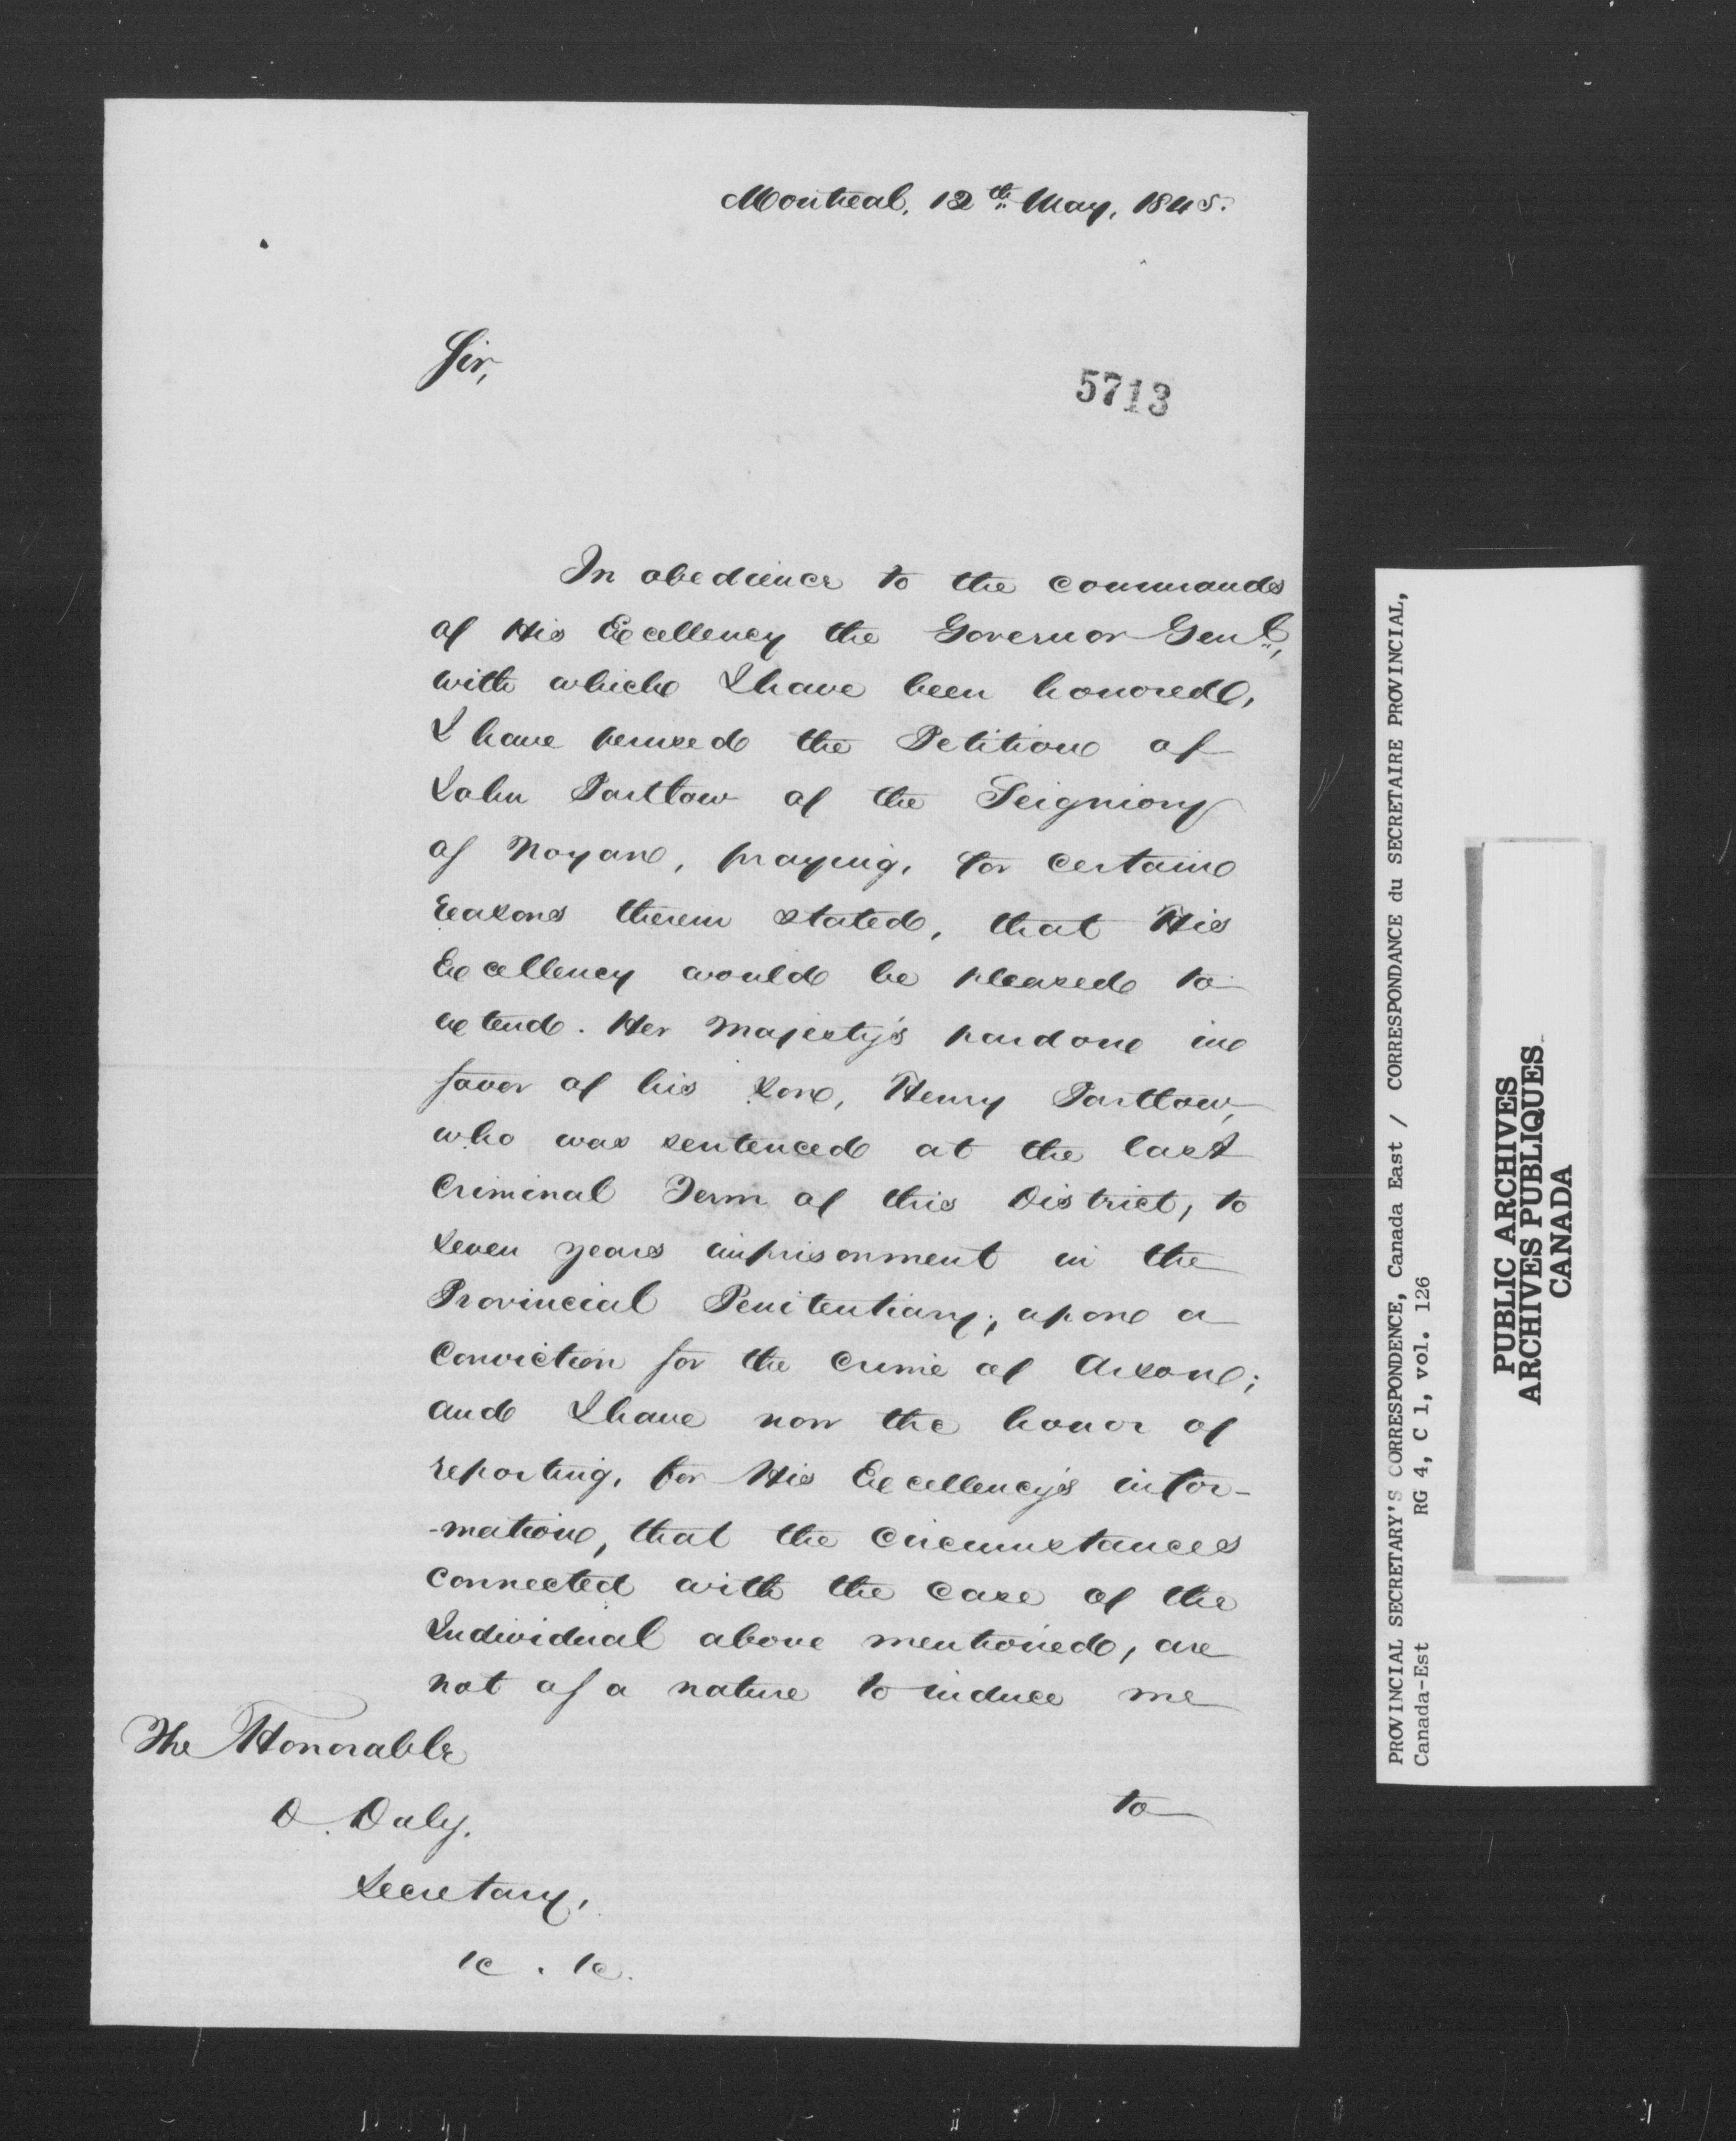 Montreal, 12th May, 1845.
Sir,
5713
In obedience to the commands
of His Excellency the Governor Genl,
with which I have been honored,
I have perused the Petition of
John Partlow of the Seigniory
of Noyan, praying, for certain
reasons therein stated, that His
Excellency would be pleased to
extend Her Majesty's pardon in
favor of his son, Henry Partlow,
who was sentenced at the last
Criminal Term of this District, to
seven years imprisonment in the
Provincial Penitentiary, upon a
Conviction for the Crime of Arson;
and I have now the honor of
reporting, for His Excellency's infor-
-mation, that the circumstances
connected with the case of the
Individual above mentioned, are
not of a nature to induce me
to
The Honorable
D. Daly,
Secretary,
&c. &c.
PROVINCIAL SECRETARY'S CORRESPONDENCE, Canada East / CORRESPONDANCE du SECRETAIRE PROVINCIAL,
Canada-Est RG 4, C 1, vol. 126
PUBLIC ARCHIVES
ARCHIVES PUBLIQUES
CANADA